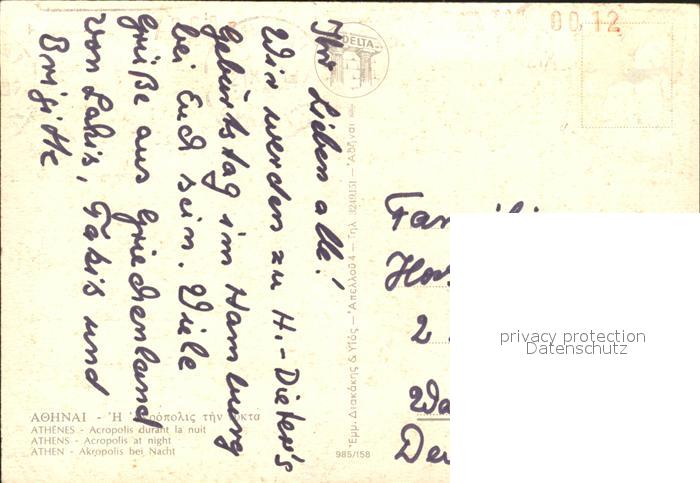 Ihr Lieben alle!
Wir werden zu H.-Dieter's
Geburtstag im Hamburg
bei Euch sein. Viele
Grüße aus Griechenland
von Lakis, Takis und
Brigitte
DELTA
00.12
Εμμ. Διακάκης & Υἱός — Ἀπελλοῦ 4 — Τηλ. 3249151 — Ἀθῆναι
Familie
2
Wa
Deu
privacy protection
Datenschutz
ΑΘΗΝΑΙ - Ἡ Ἀκρόπολις τὴν νύκτα
ATHÈNES - Acropolis durant la nuit
ATHENS - Acropolis at night
ATHEN - Akropolis bei Nacht
985/158